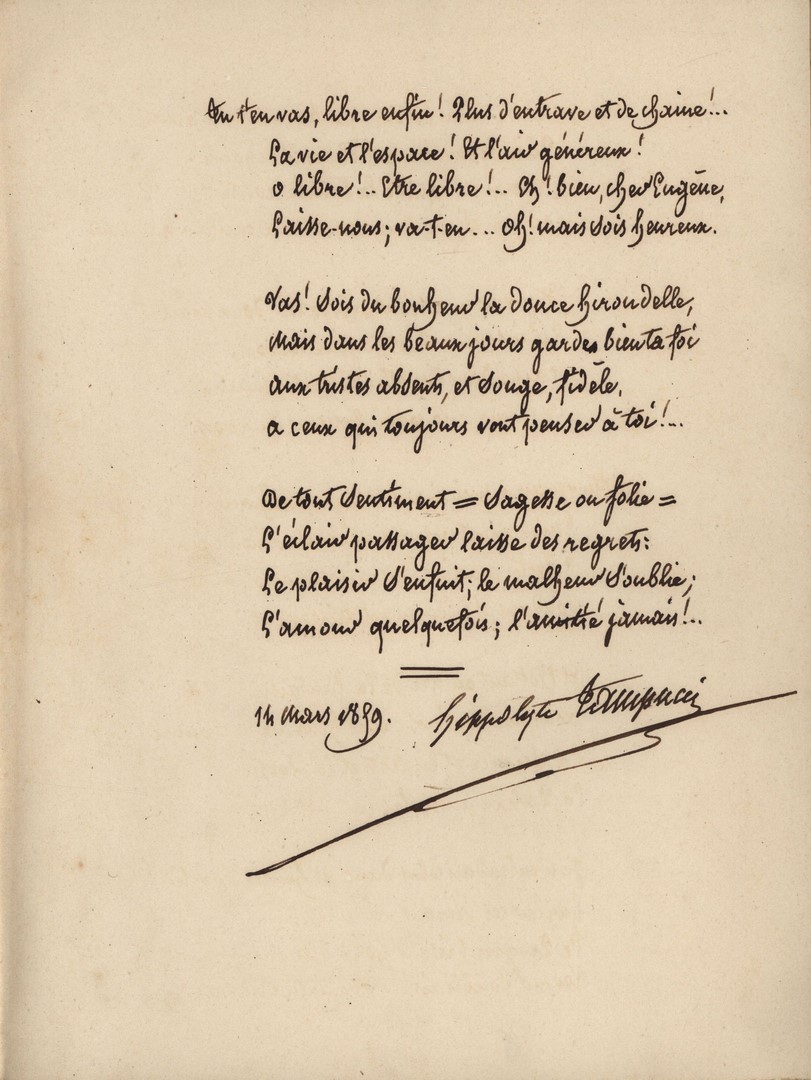 Tu t'en vas, libre enfin! Plus d'entrave et de chaine!..
La vie et l'espace! Et l'air généreux!
O libre!.. Etre libre!.. Eh! bien, cher Eugène,
Laisse-nous; va-t-en... Oh! mais sois heureux.
Vas! Sois du bonheur la douce hirondelle,
Mais dans les beaux jours gardes bien ta foi
aux tristes absents, et songe, fidèle,
a ceux qui toujours vont penser à toi!...
De tout sentiment = sagesse ou folie =
L'éclair passager laisse des regrets:
Le plaisir s'enfuit; le malheur s'oublie;
L'amour quelquefois; l'amitié jamais!..
14 Mars 1859. Hippolyte Tampucci